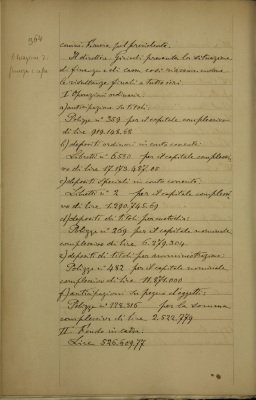 964
Situazione di
finanza e cassa
comm. Pincore pel presidente.
Il direttore presenta la situazione
di finanza e di cassa così riassumendone
le risultanze finali a tutto ieri.
I Operazioni ordinarie.
a) anticipazione su titoli.
Polizze n° 359 per il capitale complessivo
di lire 919.148.68
b) depositi ordinari in conto corrente.
Libretti n° 6530 per il capitale complessi-
vo di lire 17.173.457.05
c) depositi speciali in conto corrente.
Libretti n° 2 per il capitale complessi-
vo di lire 1.290.745.69
d) depositi di titoli per custodia.
Polizze n° 259 per il capitale nominale
complessivo di lire 6.279.304
e) depositi di titoli per amministrazione.
Polizze n° 482 per il capitale nominale
complessivo di lire 11.876.000
f) anticipazioni su pegno d'oggetti.
Polizze n° 128.316 per la somma
complessiva di lire 2.522.779
II Fondo in cassa.
Lire 526.609,77